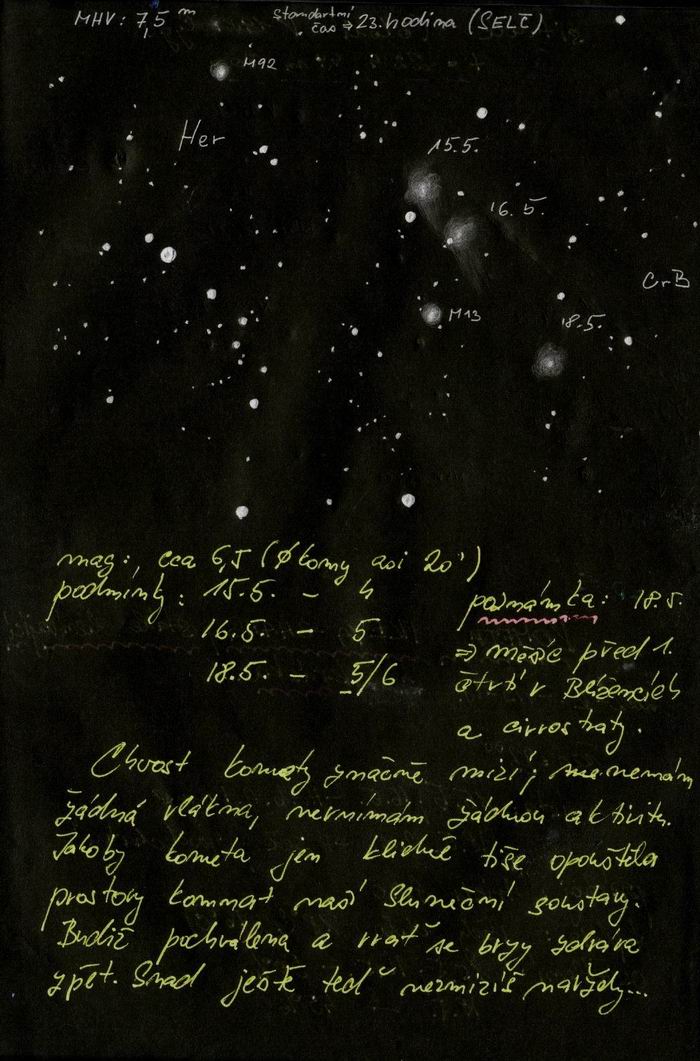 MHV: 7,5 m
standartní čas => 23. hodina (SELČ)
M92
Her
15.5.
16.5.
CrB
M13
18.5.
mag:, cca 6,5 (ø komy asi 20')
podmínky: 15.5. - 4
16.5. - 5
18.5. - 5/6
poznámka: 18.5.
=> měsíc před 1.
čtvrtí v Blížencích
a cirrostraty.
Chvost komety značně mizí;
žádná vlákna, nevnímám žádnou aktivitu.
Jakoby kometa jen klidně tiše opouštěla
prostory komnat naší Sluneční soustavy.
Budiž pochválena a vrať se brzy zdráva
zpět. Snad ještě teď nezmizíš navždy...